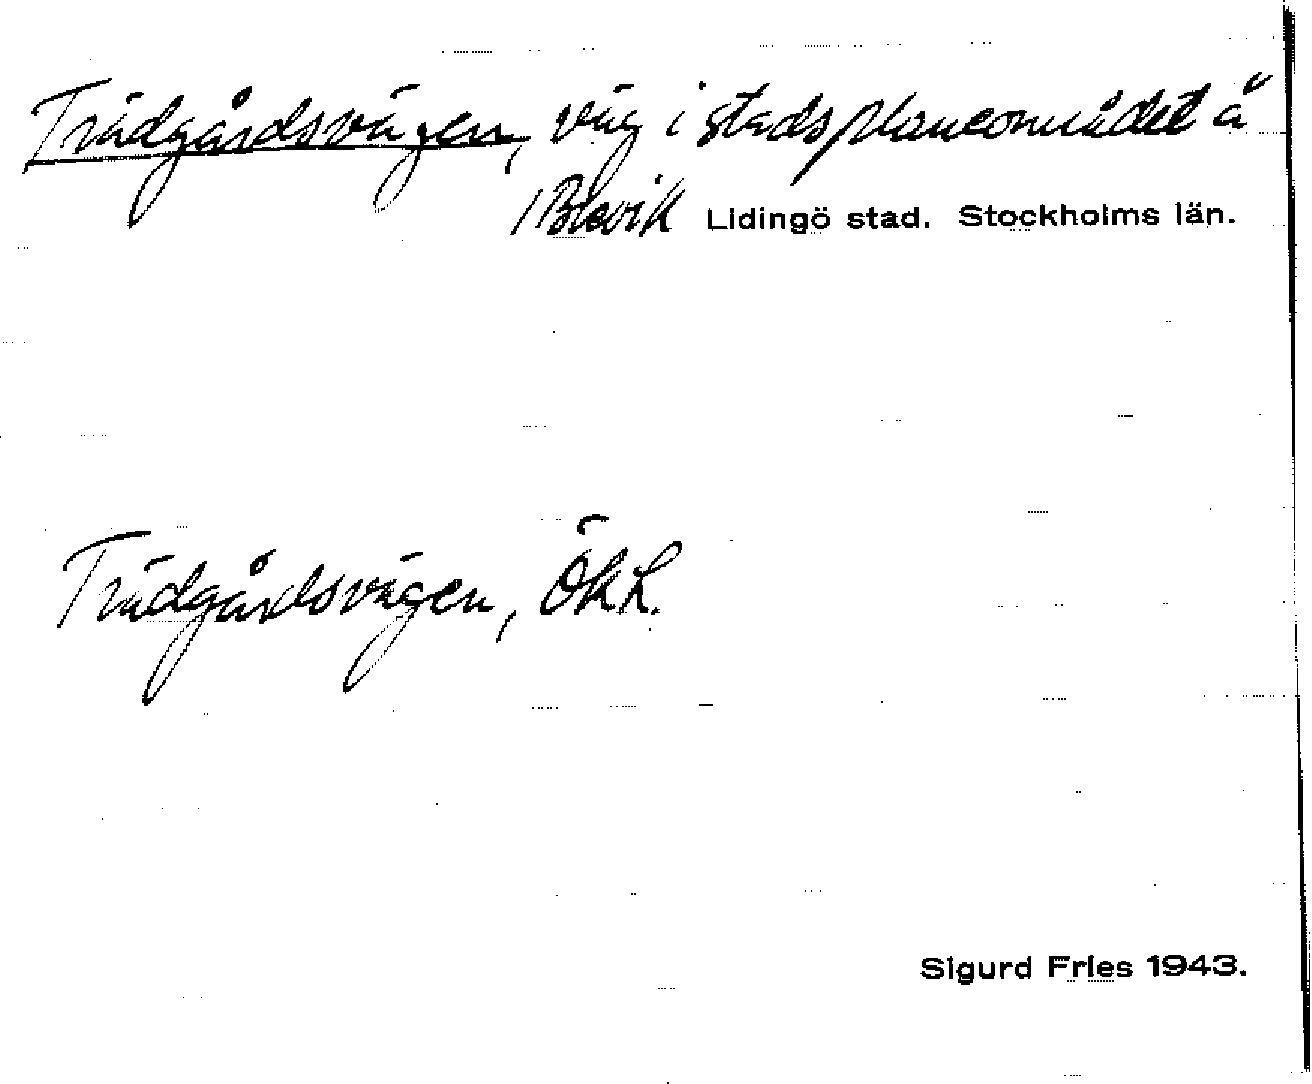 Trädgårdsvägen, väg i stadsplaneområdet å
/Brevik Lidingö stad. Stockholms län.
Trädgårdsvägen, ÖkL.
Sigurd Fries 1943.